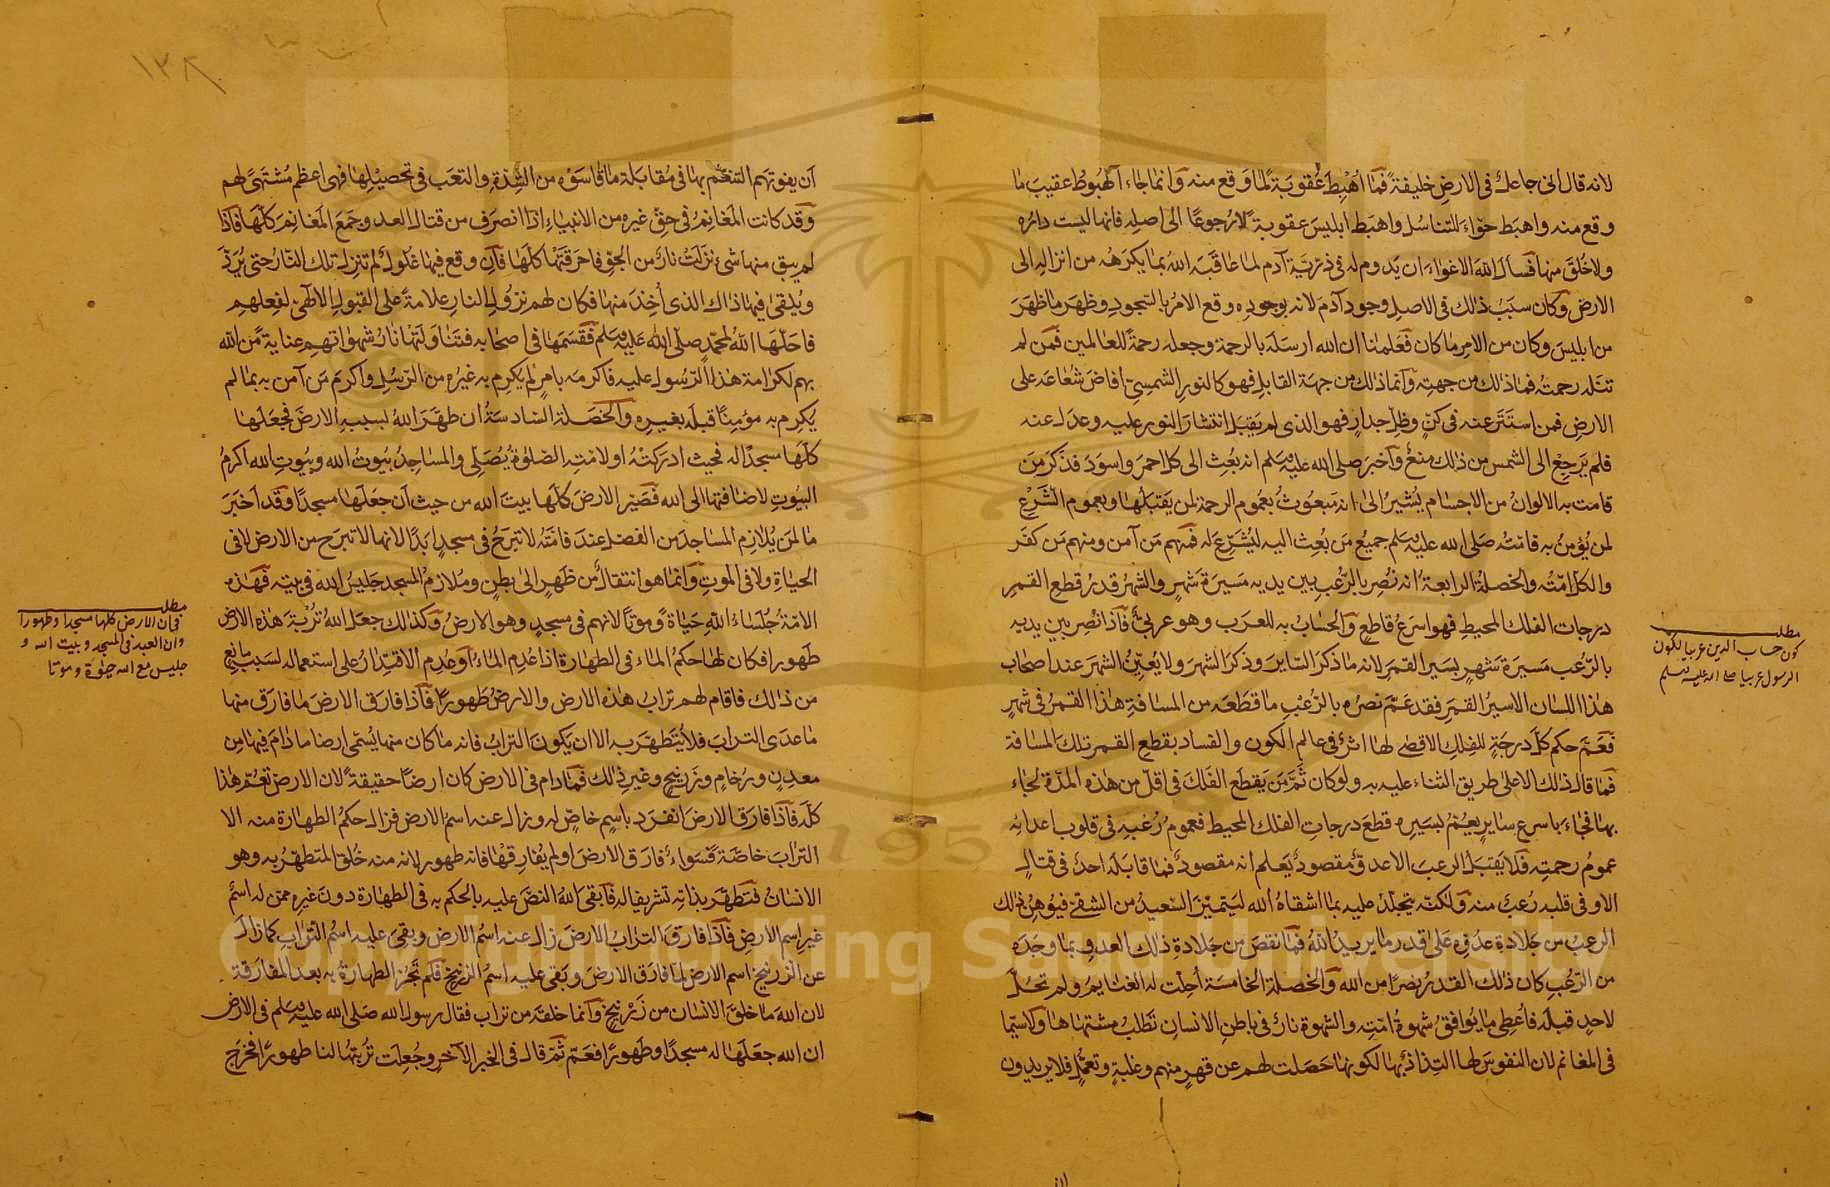 لانه قال انى جاعل فى الارض خليفة فما اهبط عقوبة لما وقع منه وانما جاء الهبوط عقيب ما
وقع منه واهبط حواء للتناسل واهبط ابليس عقوبة لا رجوعا الى اصله فانها ليست داره
ولا خلق منها فسأل الله الاغواء ان يدوم له فى ذرية آدم لما عاقبه الله بما يكرهه من انزاله الى
الارض وكان سبب ذلك فى الاصل وجود آدم لانه بوجوده وقع الامر بالسجود وظهر ما ظهر
من ابليس وكان من الامر ما كان فعلمنا ان الله ارسله بالرحمة وجعله رحمة للعالمين فمن لم
تنله رحمته فما ذلك من جهته وانما ذلك من جهة القابل فهو كالنور الشمسى افاض شعاعه على
الارض فمن استتر عنه فى كن وظل جدار فهو الذى لم يقبل انتشار النور عليه وعدل عنه
فلم يرجع الى الشمس من ذلك منع وآخبر صلى الله عليه وسلم انه بعث الى كل احمر واسود فذكر من
قامت به الالوان من الاجسام يشير الى انه مبعوث بعموم الرحمة لمن يقبلها وبعموم الشرع
لمن يؤمن به فامته صلى الله عليه وسلم جميع من بعث اليه ليشرع له فمنهم من آمن ومنهم من كفر
والكل امته والخصلة الرابعة انه نصر بالرعب بين يديه مسيرة شهر والشهر قدر قطع القمر
درجات الفلك المحيط فهو اسرع قاطع والحساب به للعرب وهو عربى فاذا نصر بين يديه
بالرعب مسيرة شهر بسير القمر لانه ما ذكر السائر وذكر الشهر ولا يعين الشهر عند اصحاب
هذا اللسان الا سير القمر فقد عم نصره بالرعب ما قطعه من المسافة هذا القمر فى شهر
فعم حكم كل درجة للفلك الاقصى لها اثر فى عالم الكون والفساد بقطع القمر تلك المسافة
فما قال ذلك الا على طريق الثناء عليه به ولو كان ثم من يقطع الفلك فى اقل من هذه المدة لجاء
بها فجاء باسرع سائر يعم بسيره قطع درجات الفلك المحيط فعموم رعبه فى قلوب اعدائه
عموم رحمته فلا يقبل الرعب الا عدو مقصود يعلم انه مقصود فما قابله احد فى قتال
الا وفى قلبه رعب منه ولكنه يتجلد عليه بما اشقاه الله ليتميز السعيد من الشقى فيوهن ذلك
الرعب من جلادة عدوه على قدر ما يريد الله فما نقص من جلادة ذلك العدو بما وجده
من الرعب كان ذلك القدر نصرا من الله والخصلة الخامسة احلت له الغنائم ولم تحل
لاحد قبله فاعطى ما يوافق شهوة امته والشهوة نار فى باطن الانسان تطلب مشتهاها ولاسيما
فى المغانم لان النفوس لها التذاذ بها لكونها حصلت لهم عن قهر منهم وغلبة وتعمل فلا يريدون
مطلب
كون حساب الدين عربيا لكون
الرسول عربيا صلى الله عليه وسلم
١٣٨
ان يفوتهم التنعم بها فى مقابلة ما قاسوه من الشدة والتعب فى تحصيلها فهى اعظم مشتهى لهم
وقد كانت المغانم فى حق غيره من الانبياء اذا انصرف من قتال العدو جمع المغانم كلها فاذا
لم يبق منها شئ نزلت نار من الجو فاحرقتها كلها فان وقع فيها غلول لم تنزل تلك النار حتى يرد
ويلقى فيها ذاك الذى اخذ منها فكان لهم نزول النار علامة على القبول الالهى لفعلهم
فاحلها الله لمحمد صلى الله عليه وسلم فقسمها فى اصحابه فتناولتها نار شهواتهم عناية من الله
بهم لكرامة هذا الرسول عليه فاكرمه بامر لم يكرم به غيره من الرسل واكرم من آمن به بما لم
يكرم به مؤمنا قبله بغيره والخصلة السادسة ان طهر الله بسببه الارض فجعلها
كلها مسجدا له فحيث ادركته او لامته الصلوة يصلى والمساجد بيوت الله وبيوت الله اكرم
البيوت لاضافتها الى الله فصير الارض كلها بيت الله من حيث ان جعلها مسجدا وقد اخبر
ما لمن يلازم المساجد من الفضل عند فامته لا تبرح فى مسجد ابدا لانها لا تبرح من الارض لا فى
الحياة ولا فى الموت وانما هو انتقال من ظهر الى بطن وملازم المسجد جليس الله فى بيته فهذه
الامة جلساء الله حياة وموتا لانهم فى مسجد وهو الارض وكذلك جعل الله تربة هذه الارض
طهورا فكان لها حكم الماء فى الطهارة اذا عدم الماء او عدم الاقتدار على استعماله لسبب مانع
من ذلك فاقام لهم تراب هذه الارض والارض طهورا فاذا فارق الارض ما فارق منها
ما عدى التراب فلا يتطهر به الا ان يكون التراب فانه ما كان منها يسمى ارضا ما دام فيها من
معدن ورخام وزرنيخ وغير ذلك فما دام فى الارض كان ارضا حقيقة لان الارض تعم هذا
كله فاذا فارق الارض انفرد باسم خاص له وزال عنه اسم الارض فزال حكم الطهارة منه الا
التراب خاصة فسواء فارق الارض او لم يفارقها فانه طهور لانه منه خلق المتطهر به وهو
الانسان فتطهر بذاته تشريفا له فابقى الله النص عليه بالحكم به فى الطهارة دون غيره ممن له اسم
غير اسم الارض فاذا فارق التراب الارض زال عنه اسم الارض وبقى عليه اسم التراب كما زال
عن الزرنيخ اسم الارض لما فارق الارض وبقى عليه اسم الزرنيخ فلم تجز الطهارة به بعد المفارقة
لان الله ما خلق الانسان من زرنيخ وانما خلقه من تراب فقال رسول الله صلى الله عليه وسلم فى الارض
ان الله جعلها له مسجدا وطهورا فعم ثم قال فى الخبر الآخر وجعلت تربتها لنا طهورا فخرج
مطلب
فى ان الارض كلها مسجدا وطهورا
وان العبد فى المسجد وبيت الله و
جليس مع الله حيوة وموتا
1957
Copyright © King Saud University